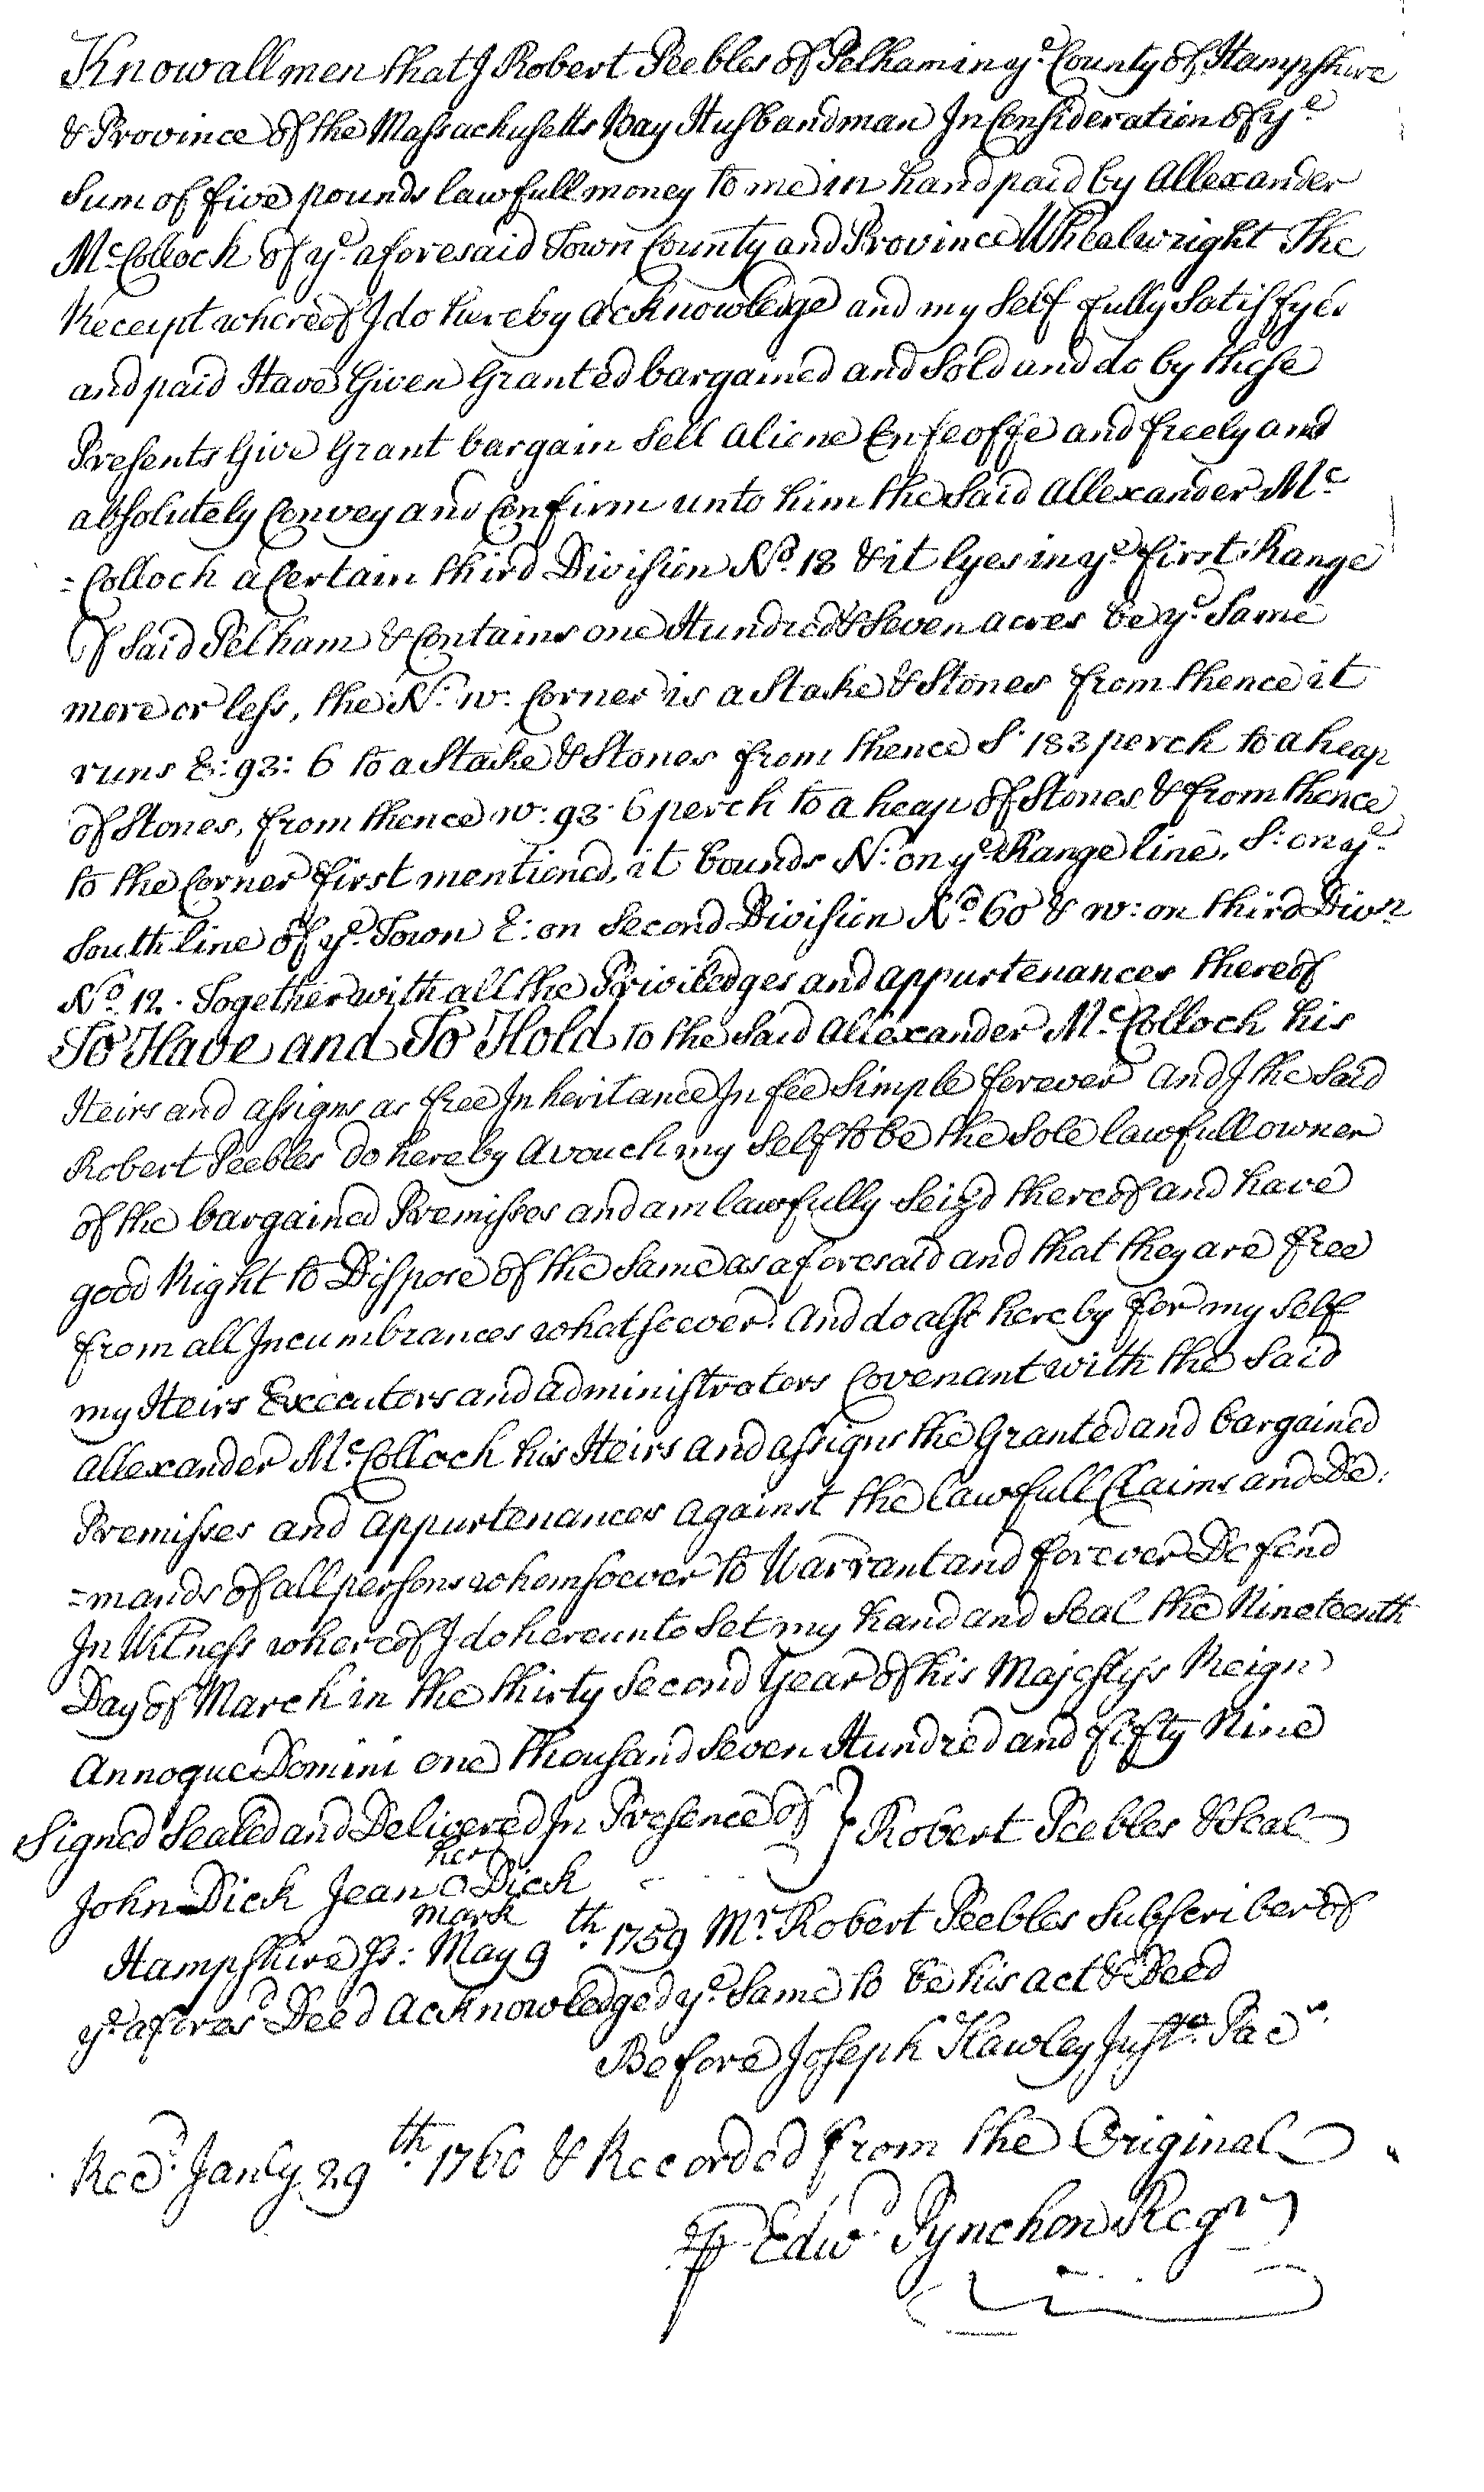 Know all men that I Robert Peebles of Pelham in ye County of Hampshire
& Province of the Massachusetts Bay Husbandman In Consideration of ye
Sum of five pounds lawfull money to me in hand paid by Allexander
McColloch of ye aforesaid Town County and Province Whealwright The
Receipt whereof I do hereby acknowledge and my Self fully Satisfyed
and paid Have Given Granted bargained and Sold and do by these
Presents Give Grant bargain Sell aliene Enfeoffe and freely and
absolutely Convey and Confirm unto him the Said Allexander Mc
=Colloch a Certain third Division No. 13 & it lyes in ye first Range
Of Said Pelham & Contains one Hundred & Seven acres be ye Same
more or less, the N: W: Corner is a Stake & Stones from thence it
runs E: 93: 6 to a Stake & Stones from thence S: 183 perch to a heap
of Stones, from thence W: 93: 6 perch to a heap of Stones & from thence
to the Corner first mentioned, it bounds N: on ye Range line, S: on ye
South line of ye Town E: on Second Division No 60 & W: on third Divn
No. 12. Together with all the Priviledges and appurtenances thereof
To Have and To Hold to the Said Allexander McColloch his
Heirs and assigns as free Inheritance In fee Simple forever and I the Said
Robert Peebles do hereby avouch my Self to be the Sole lawfull owner
of the bargained Premisses and am lawfully Seizd thereof and have
good Right to Dispose of the Same as aforesaid and that they are free
from all Incumbrances whatsoever: And do also hereby for my Self
my Heirs Executors and administrators Covenant with the Said
Allexander McColloch his Heirs and assigns the Granted and bargained
Premisses and appurtenances against the lawfull Claims and De:
=mands of all persons whomsoever to Warrant and forever Defend
In Witness whereof I do hereunto Set my hand and Seal the Nineteenth
Day of March in the thirty Second Year of his Majesty's Reign
Annoque Domini one thousand Seven Hundred and fifty Nine
Signed Sealed and Delivered In Presence of } Robert Peebles & Seal
her
John Dick Jean O Dick
mark
Hampshire Ss: May 9th. 1759 Mr Robert Peebles Subscriber of
ye aforesd Deed acknowledged ye Same to be his act & Deed
Before Joseph Hawley Juste. Pacs.
Recd. Janly 29th. 1760 & Recorded from the Original
P Edwd Pynchon Regr